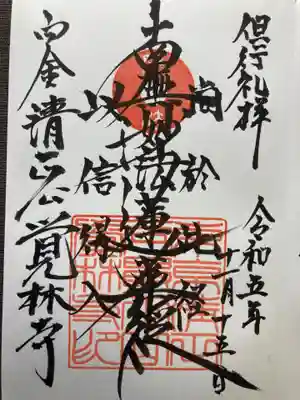 但行礼拝
令和五年
十一月十三日
尚於此経
南無妙法蓮華経
以信得入
白金清正公覚林寺